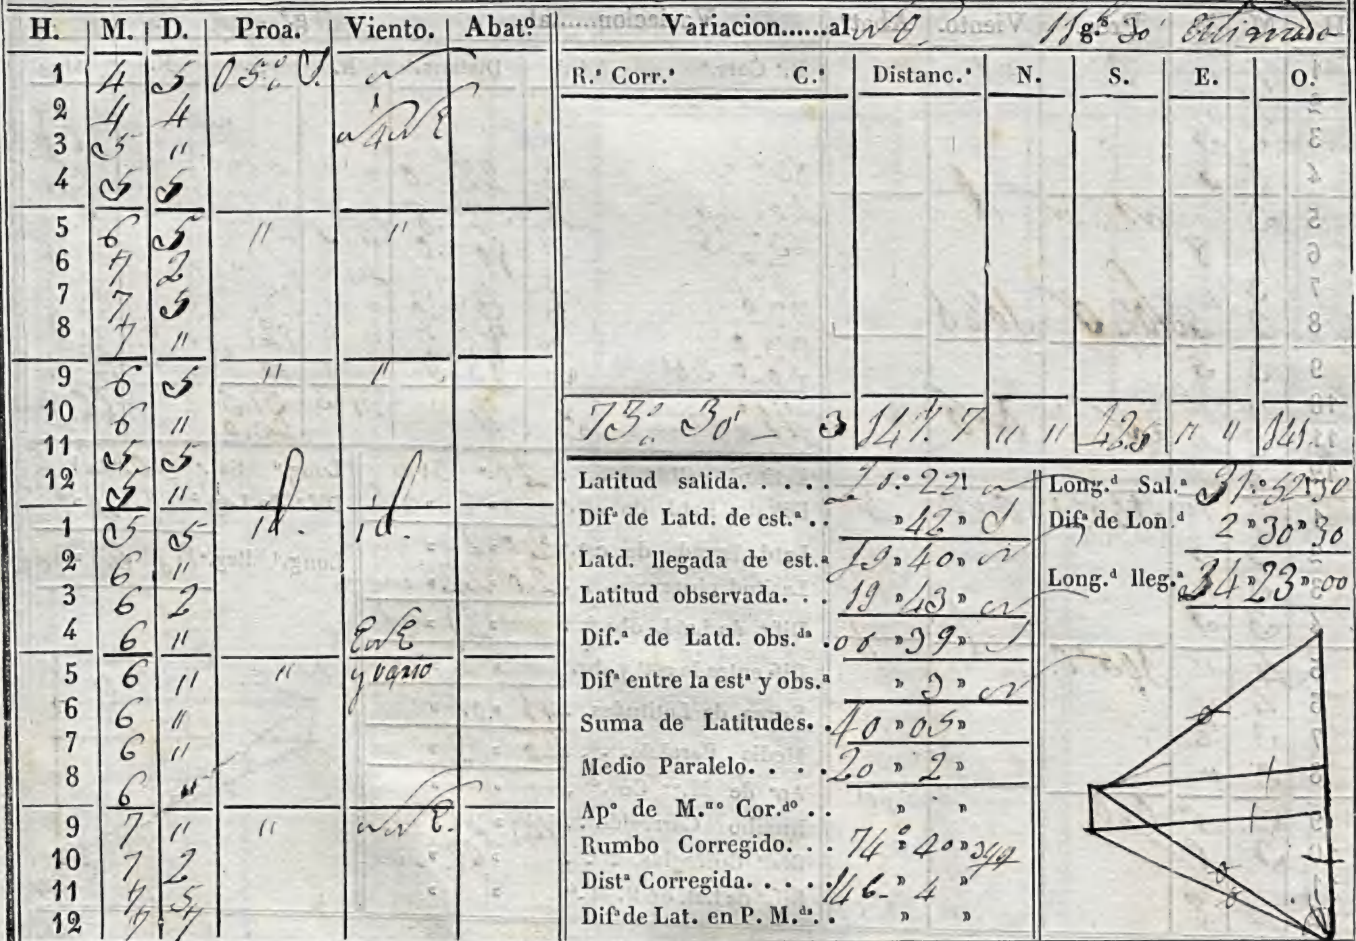 H. M. D. Proa. Viento. Abat.º Variacion......al N O. 11 g.s 30
1 4 5 O 5º S. N
2 4 4
3 5 " N 4 N E
4 5 5
5 6 5 " "
6 7 2
7 7 5
8 7 "
9 6 5 " "
10 6 "
11 5 5
12 5 " id. id.
1 5 5
2 6 "
3 6 2
4 6 " E N E
5 6 " " y vario
6 6 "
7 6 "
8 6 "
9 7 " " N N E.
10 7 2
11 7 5
12 7 "
R.ª Corr.ª C.ª Distanc.ª N. S. E. O.
73º 30' 147. 7 " " 42.5 " " 141.
Latitud salida. . . . . 20.º 22! N
Difª de Latd. de est.ª . . " 42 " S
Latd. llegada de est.ª 19 " 40 " N
Latitud observada. . . 19 " 43 " N
Dif.ª de Latd. obs.dª . 00 " 39 " S
Difª entre la estª y obs.ª " 3 " N
Suma de Latitudes. . 40 " 05 "
Medio Paralelo. . . . 20 " 2 "
Apº de M.nº Cor.dº . . " "
Rumbo Corregido. . . 74 º 40 "
Distª Corregida. . . . . 146 " 4 "
Difª de Lat. en P. M.dª. . " "
Long.d Sal.ª 31.º 52! 30
Difª de Lon.d 2 " 30 " 30
Long.d lleg.ª 34 " 23 " 00